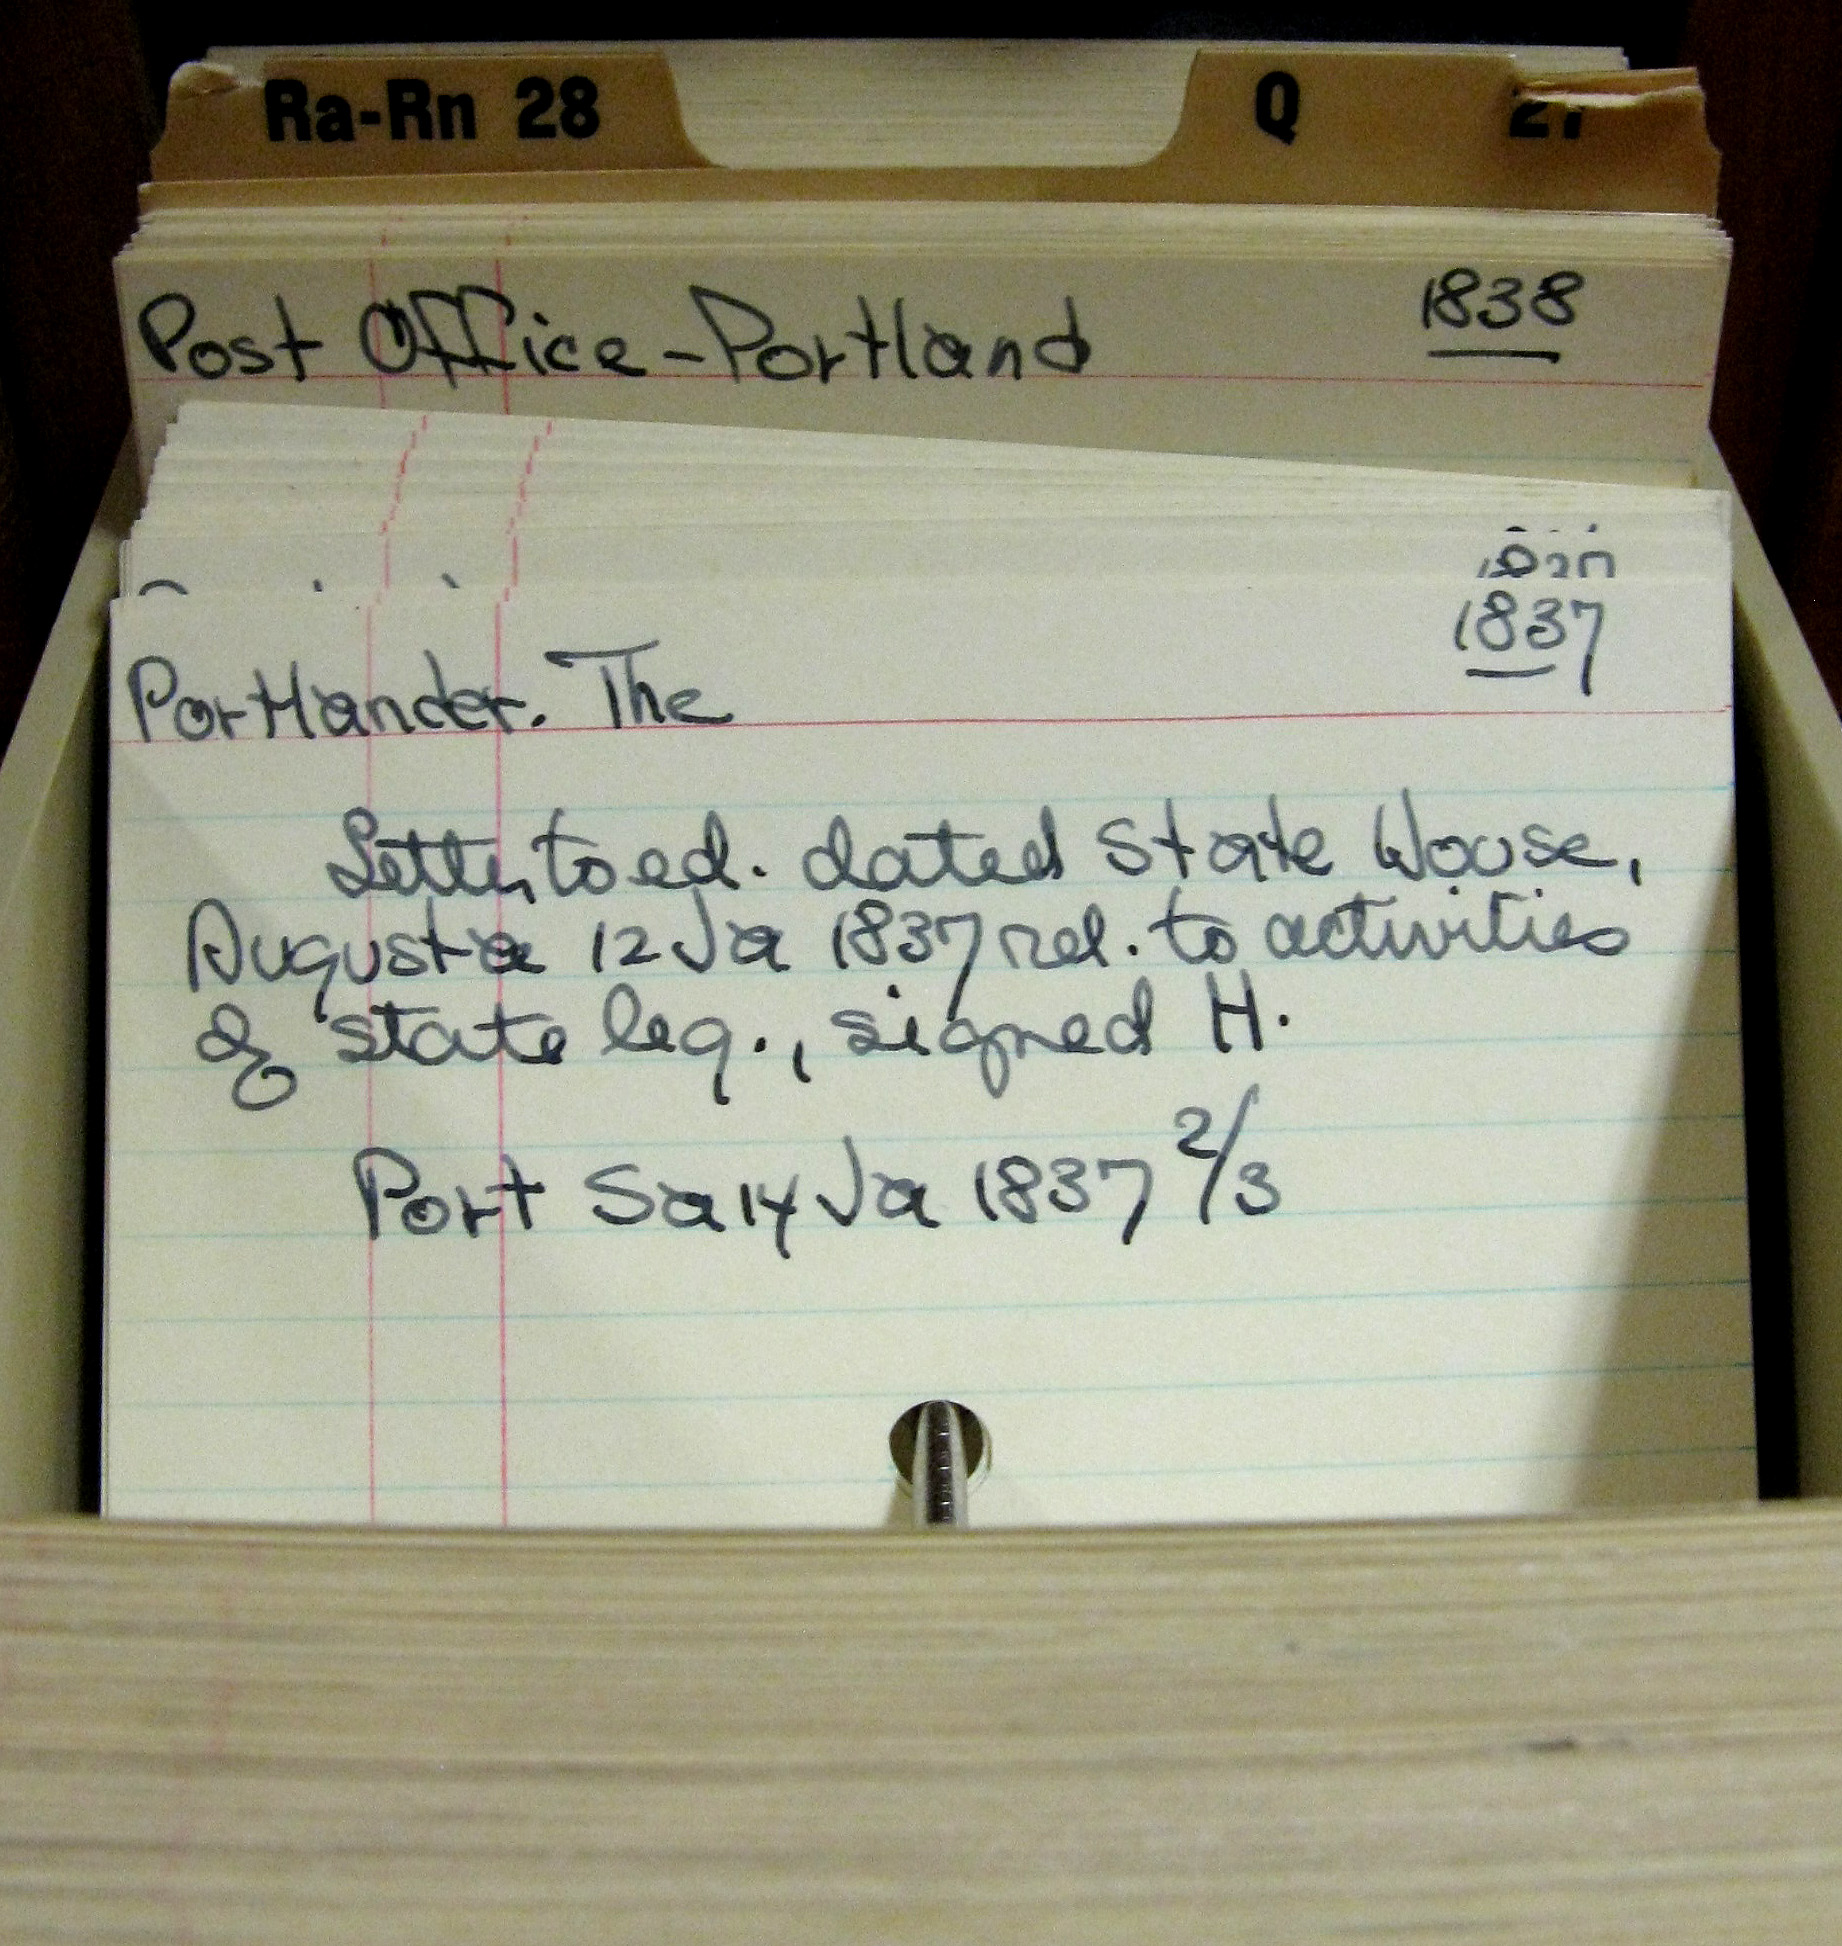 Ra-Rn 28
Q 27
Post Office-Portland 1838
1837
Portlander. The
Letter to ed. dated State House,
Augusta 12 Ja 1837 rel. to activities
of state leg., signed H.
Port Sa 14 Ja 1837 2/3